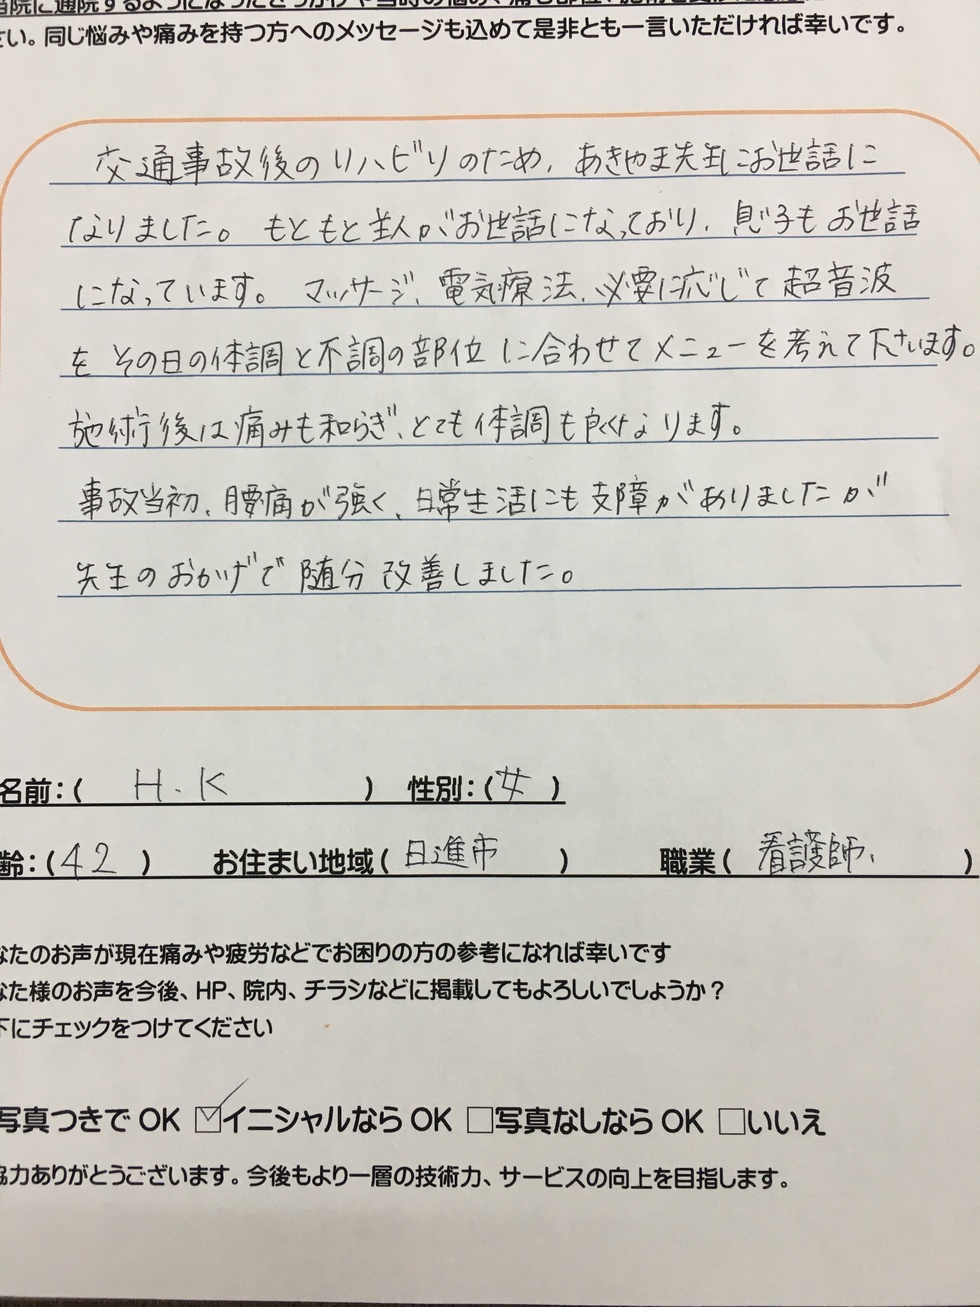 当院に通院するようになったきっかけや当時の悩み、痛む部位、施術を受けた感想
さい。同じ悩みや痛みを持つ方へのメッセージも込めて是非とも一言いただければ幸いです。
交通事故後のリハビリのため、あきやま先生にお世話に
なりました。もともと主人がお世話になっており、息子もお世話
になっています。マッサージ、電気療法、必要に応じて超音波
をその日の体調と不調の部位に合わせてメニューを考えて下さいます。
施術後は痛みも和らぎ、とても体調も良くなります。
事故当初、腰痛が強く、日常生活にも支障がありましたが
先生のおかげで随分改善しました。
名前：( H.K ) 性別：(女)
齢：(42) お住まい地域( 日進市 ) 職業( 看護師、 )
なたのお声が現在痛みや疲労などでお困りの方の参考になれば幸いです
なた様のお声を今後、HP、院内、チラシなどに掲載してもよろしいでしょうか？
下にチェックをつけてください
写真つきでOK ☑イニシャルならOK □写真なしならOK □いいえ
協力ありがとうございます。今後もより一層の技術力、サービスの向上を目指します。